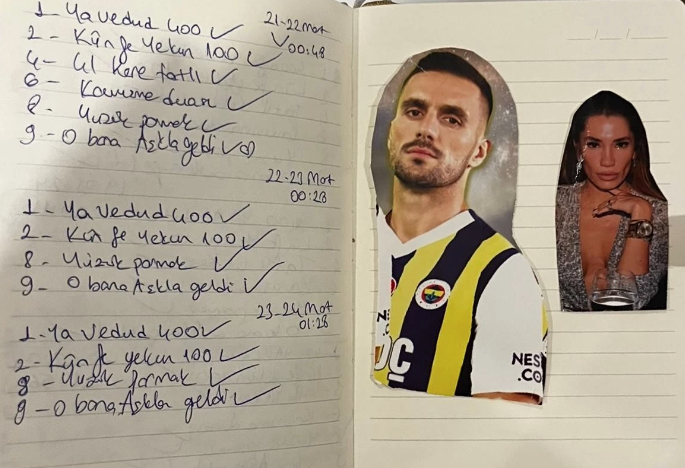 1 - Ya Vedud 400 ✓
21-22 Mart
✓00:48
2 - Kûn fe Yekun 100 ✓
4 - 41 Kere ✓
6 - Kavuşma duası ✓
8 - Yüzük parmak ✓
9 - O bana Aşkla geldi ✓
22-23 Mart
00:28
1 - Ya Vedud 400 ✓
2 - Kûn fe Yekun 100 ✓
8 - Yüzük parmak ✓
9 - O bana Aşkla geldi ✓
23-24 Mart
01:28
1 - Ya Vedud 400 ✓
2 - Kûn fe yekun 100 ✓
8 - Yüzük parmak ✓
9 - O bana Aşkla geldi ✓
NES
.CO